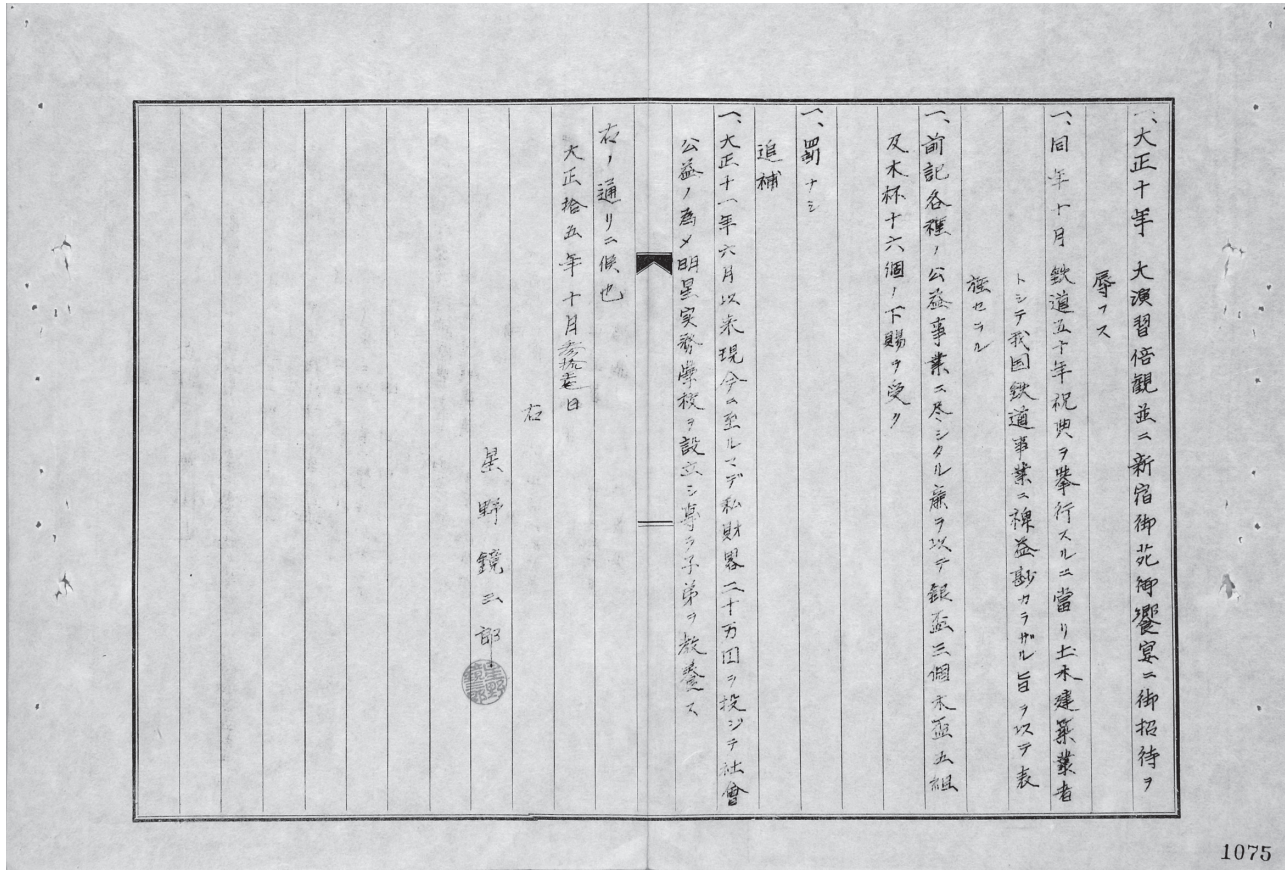 一、大正十年 大演習倍観並ニ新宿御苑御饗宴ニ御招待ヲ
辱フス
一、同年十月鉄道五十年祝典ヲ挙行スルニ當リ土木建築業者
トシテ我国鉄道事業ニ裨益尠カラザル旨ヲ以テ表
旌セラル
一、前記各種ノ公益事業ニ尽シタル廉ヲ以テ銀盃三個木盃五組
及木杯十六個ノ下賜ヲ受ク
一、罰ナシ
追補
一、大正十一年六月以来現今ニ至ルマデ私財畧二十万円ヲ投ジテ社會
公益ノ為メ明星実務學校ヲ設立シ専ラ子弟ヲ教養ス
右ノ通リニ候也
大正拾五年十月参拾壱日
右
星野鏡三郎
星野鏡三郎
1075